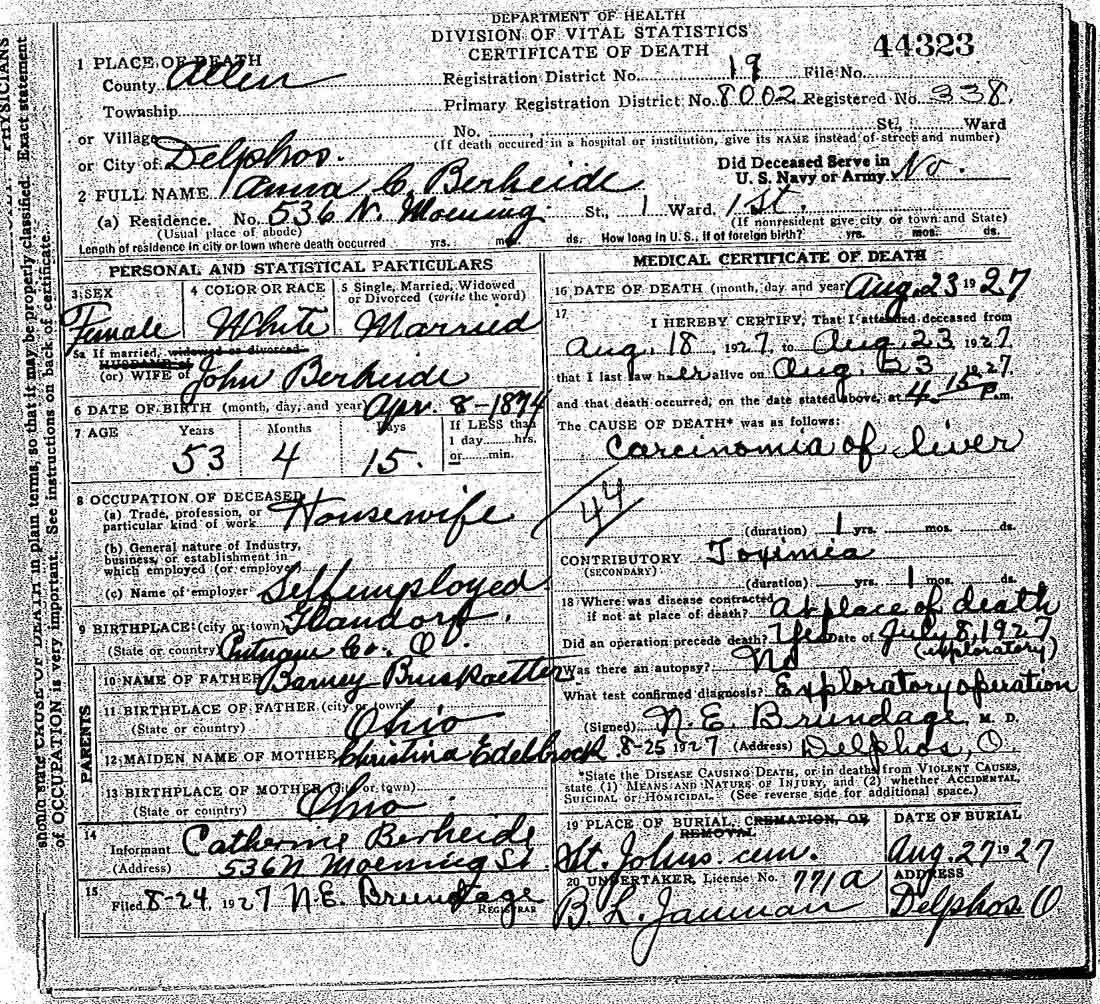 DEPARTMENT OF HEALTH
DIVISION OF VITAL STATISTICS
CERTIFICATE OF DEATH
44323
1 PLACE OF DEATH
County Allen
Registration District No. 19 File No.
Township
Primary Registration District No. 8002 Registered No. 338.
or Village
No. , St., Ward
(If death occured in a hospital or institution, give its NAME instead of street and number)
or City of Delphos.
Did Deceased Serve in
U. S. Navy or Army No.
2 FULL NAME Anna C. Berheide
(a) Residence. No. 536 N. Moening. St., 1 Ward. 1st.
(Usual place of abode)
(If nonresident give city or town and State)
Length of residence in city or town where death occurred yrs. mos. ds. How long in U. S., if of foreign birth? yrs. mos. ds.
PERSONAL AND STATISTICAL PARTICULARS
3 SEX
Female
4 COLOR OR RACE
White
5 Single, Married, Widowed
or Divorced (write the word)
Married
5a If married, widowed or divorced
HUSBAND of
(or) WIFE of John Berheide
6 DATE OF BIRTH (month, day, and year) Apr. 8-1874
7 AGE Years Months Days
53 4 15.
If LESS than
1 day hrs.
or min.
8 OCCUPATION OF DECEASED
(a) Trade, profession, or
particular kind of work Housewife
(b) General nature of Industry,
business, or establishment in
which employed (or employer)
(c) Name of employer Selfemployed
9 BIRTHPLACE (city or town) Glandorf.
(State or country) Putnam Co. O.
PARENTS
10 NAME OF FATHER Barney Bruskoetter
11 BIRTHPLACE OF FATHER (city or town)
(State or country) Ohio
12 MAIDEN NAME OF MOTHER Christina Edelbrock
13 BIRTHPLACE OF MOTHER (city or town)
(State or country) Ohio
14
Informant Catherine Berheide
(Address) 536 N Moening St.
15
Filed 8-24, 1927 N.E. Brundage
REGISTRAR
MEDICAL CERTIFICATE OF DEATH
16 DATE OF DEATH (month, day and year) Aug. 23 1927
17
I HEREBY CERTIFY, That I attended deceased from
Aug. 18, 1927, to Aug. 23 1927,
that I last saw her alive on Aug. 23 1927,
and that death occurred, on the date stated above, at 4 15 P.m.
The CAUSE OF DEATH* was as follows:
Carcinomia of liver
44
(duration) 1 yrs. mos. ds.
CONTRIBUTORY Toximia
(SECONDARY)
(duration) yrs. 1 mos. ds.
18 Where was disease contracted
if not at place of death? At place of death
Did an operation precede death? Yes Date of July 8, 1927
(exploratory)
Was there an autopsy? No
What test confirmed diagnosis? Exploratory operation
(Signed) N. E. Brundage M. D.
8-25 1927 (Address) Delphos, O.
*State the DISEASE CAUSING DEATH, or in deaths from VIOLENT CAUSES,
state (1) MEANS AND NATURE OF INJURY, and (2) whether ACCIDENTAL,
SUICIDAL or HOMICIDAL. (See reverse side for additional space.)
19 PLACE OF BURIAL, CREMATION, OR
REMOVAL
St. Johns cem.
DATE OF BURIAL
Aug. 27 1927
20 UNDERTAKER, License No. 771a
B. L. Jauman
ADDRESS
Delphos O
PHYSICIANS
should state CAUSE OF DEATH in plain terms, so that it may be properly classified. Exact statement
of OCCUPATION is very important. See instructions on back of certificate.